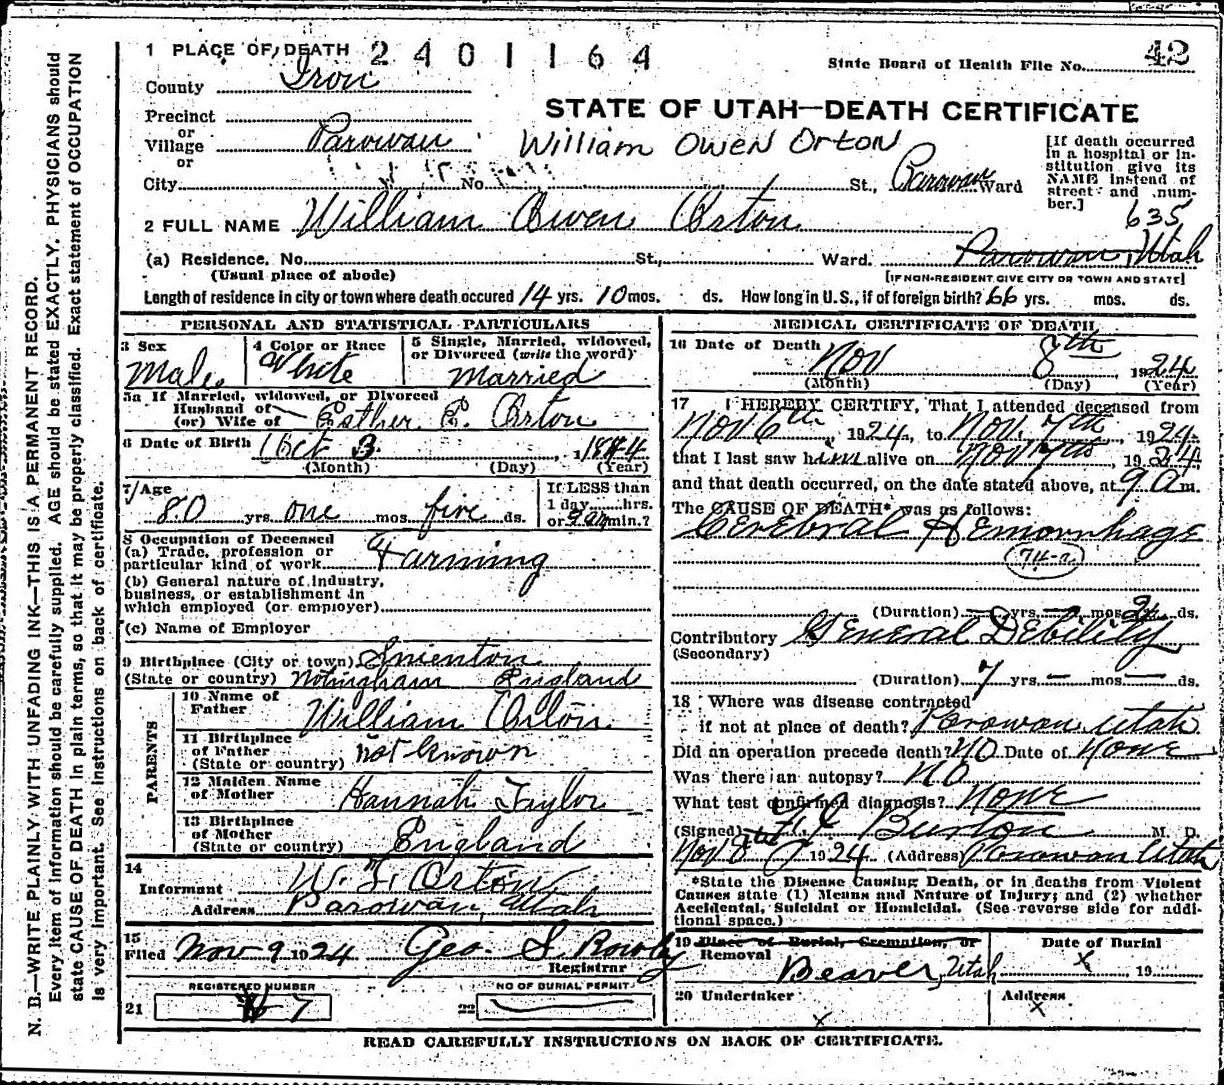 1 PLACE OF DEATH 2401164
State Board of Health File No. 42
County Iron
STATE OF UTAH—DEATH CERTIFICATE
Precinct
or
Village Parowan
or
William Owen Orton
[If death occurred in a hospital or institution give its NAME instead of street and number.]
City No. St., Parowan Ward
2 FULL NAME William Owen Orton
635
(a) Residence. No. St., Ward. Parowan, Utah
(Usual place of abode) [IF NON-RESIDENT GIVE CITY OR TOWN AND STATE]
Length of residence in city or town where death occured 14 yrs. 10 mos. ds. How long in U.S., if of foreign birth? 66 yrs. mos. ds.
PERSONAL AND STATISTICAL PARTICULARS
3 Sex
Male
4 Color or Race
White
5 Single, Married, widowed, or Divorced (write the word)
Married
5a If Married, widowed, or Divorced
Husband of
(or) Wife of Esther E. Orton
6 Date of Birth Oct 3 1844
(Month) (Day) (Year)
7 Age
80 yrs. one mos. five ds.
If LESS than
1 day hrs.
or min.?
8 Occupation of Deceased
(a) Trade, profession or
particular kind of work Farming
(b) General nature of industry,
business, or establishment in
which employed (or employer)
(c) Name of Employer
9 Birthplace (City or town)
(State or country) Notingham England
PARENTS
10 Name of
Father William Orton
11 Birthplace
of Father
(State or country) not known
12 Maiden Name
of Mother Hannah Taylor
13 Birthplace
of Mother
(State or country) England
14
Informant W. T. Orton
Address Parowan, Utah
15
Filed Nov 9 1924 Geo. S. Rowley
Registrar
REGISTERED NUMBER
21 7
NO OF BURIAL PERMIT
22
MEDICAL CERTIFICATE OF DEATH
16 Date of Death Nov 8th 1924
(Month) (Day) (Year)
17 I HEREBY CERTIFY, That I attended deceased from
Nov 6th, 1924, to Nov. 7th, 1924
that I last saw him alive on Nov 7th, 1924
and that death occurred, on the date stated above, at 9 a m.
The CAUSE OF DEATH* was as follows:
Cerebral Hemorrhage
74-a
(Duration) — yrs. — mos. 2 ds.
Contributory General Debility
(Secondary)
(Duration) 7 yrs. — mos. — ds.
18 Where was disease contracted
if not at place of death? Parowan Utah
Did an operation precede death? NO Date of None
Was there an autopsy? NO
What test confirmed diagnosis? None
(Signed) Burton M. D.
Nov 8 1924 (Address) Parowan Utah
*State the Disease Causing Death, or in deaths from Violent
Causes state (1) Means and Nature of Injury; and (2) whether
Accidental, Suicidal or Homicidal. (See reverse side for addi-
tional space.)
19 Place of Burial, Cremation, or
Removal Beaver, Utah
Date of Burial
x 19
20 Undertaker
x
Address
x
READ CAREFULLY INSTRUCTIONS ON BACK OF CERTIFICATE.
N. B.—WRITE PLAINLY WITH UNFADING INK—THIS IS A PERMANENT RECORD.
Every item of information should be carefully supplied. AGE should be stated EXACTLY. PHYSICIANS should
state CAUSE OF DEATH in plain terms, so that it may be properly classified. Exact statement of OCCUPATION
is very important. See instructions on back of certificate.